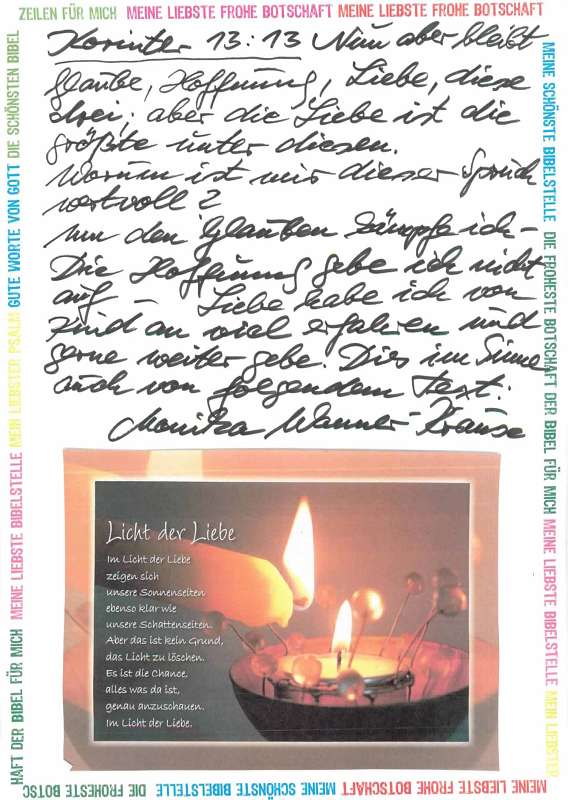 ZEILEN FÜR MICH MEINE LIEBSTE FROHE BOTSCHAFT MEINE LIEBSTE FROHE BOTSCHAFT
Korinter 13:13 Nun aber bleibt
glaube, Hoffnung, Liebe, diese
drei; aber die Liebe ist die
größte unter diesen.
Warum ist mir dieser Spruch
wertvoll?
um den Glauben kämpfe ich –
Die Hoffnung gebe ich nicht
auf – Liebe habe ich von
Kind an viel erfahren und
gerne weiter gebe. Dies im Sinne
auch von folgendem Text:
Monika Wanner-Krause
Licht der Liebe
Im Licht der Liebe
zeigen sich
unsere Sonnenseiten
ebenso klar wie
unsere Schattenseiten.
Aber das ist kein Grund,
das Licht zu löschen.
Es ist die Chance,
alles was da ist,
genau anzuschauen.
Im Licht der Liebe.
MEINE SCHÖNSTE BIBELSTELLE DIE FROHESTE BOTSCHAFT DER BIBEL FÜR MICH MEINE LIEBSTE BIBELSTELLE MEIN LIEBSTER
MEINE LIEBSTE FROHE BOTSCHAFT MEINE SCHÖNSTE BIBELSTELLE DIE FROHESTE BOTSC
HAFT DER BIBEL FÜR MICH MEINE LIEBSTE BIBELSTELLE MEIN LIEBSTER PSALM GUTE WORTE VON GOTT DIE SCHÖNSTEN BIBEL